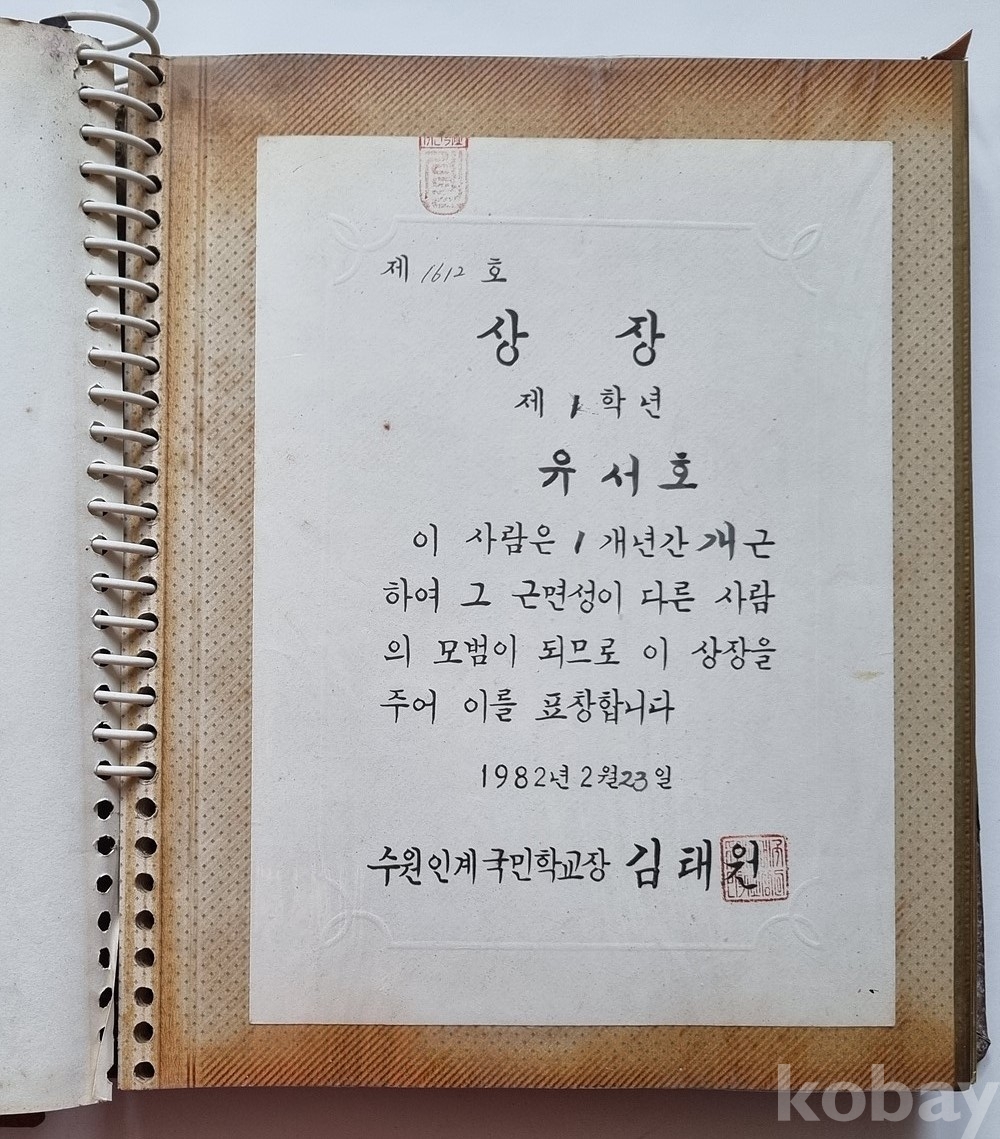 제 1612 호
상 장
제 1 학년
유서호
이 사람은 1 개년간 개근
하여 그 근면성이 다른 사람
의 모범이 되므로 이 상장을
주어 이를 표창합니다
1982년 2월 23일
수원인계국민학교장 김태원
kobay